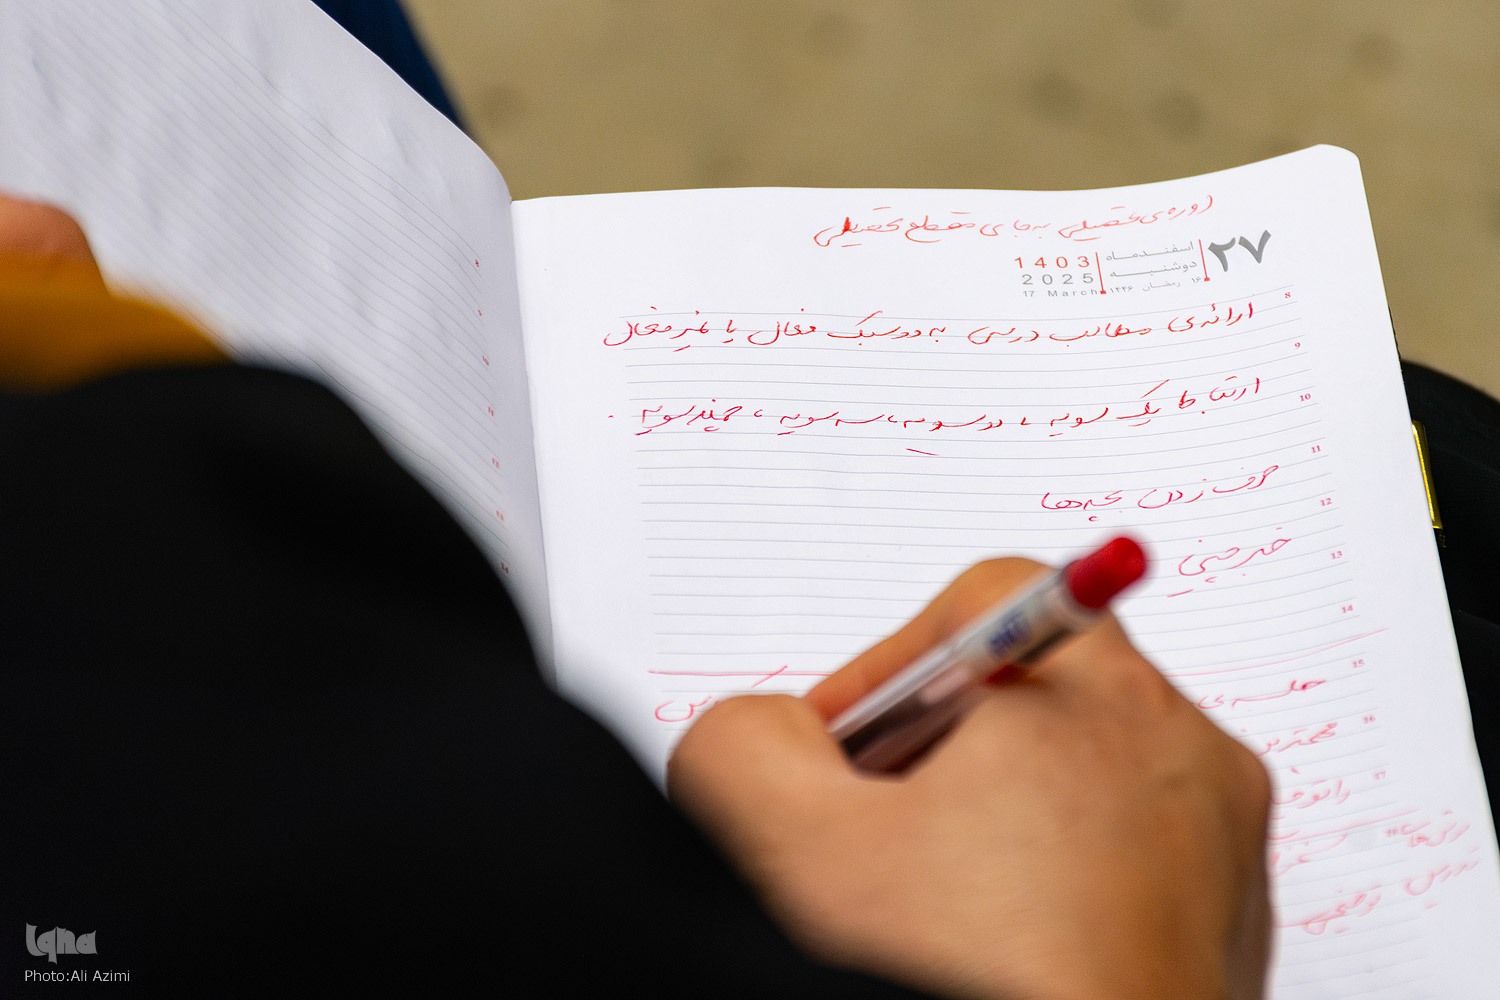 دوره‌ی تحصیلی به جای مقطع تحصیلی
۲۷
اسفندماه
دوشنبه
۱۶ رمضان ۱۴۴۶
1403
2025
17 March
8
ارائه‌ی مطالب درسی به دو سبک فعال یا غیرفعال
9
10
ارتباط یک سویه، دو سویه، سه سویه، چند سویه.
11
حرف زدن بچه‌ها
12
خبرچینی
13
14
15
جلسه‌ی
16
مهمترین
17
روش‌های
تدریس توصیفی
Iqna
Photo:Ali Azimi